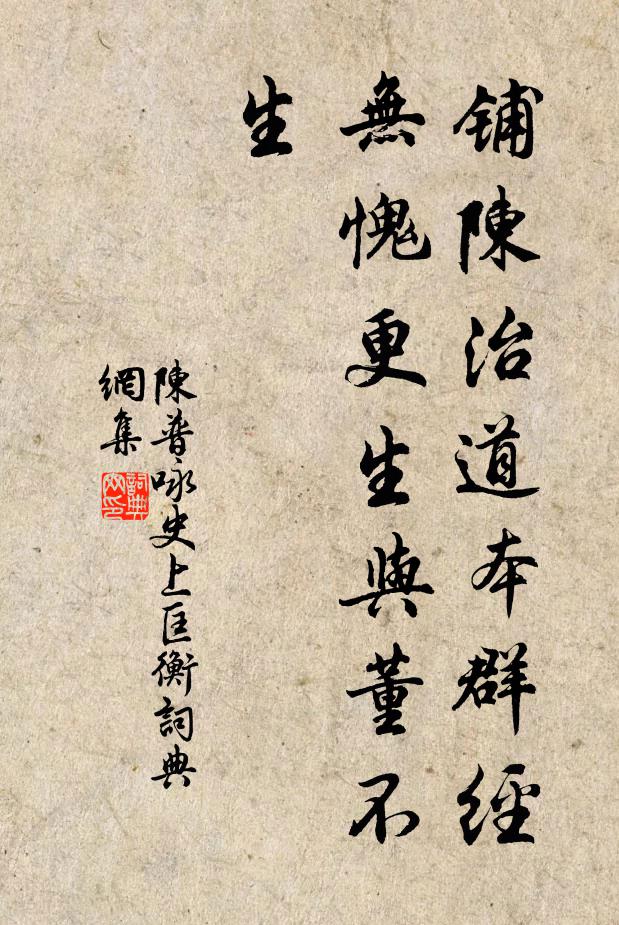 铺陳治道本群經
無愧更生與董不
生
陳普咏史上匡衡詞典
網集
詞典
网印